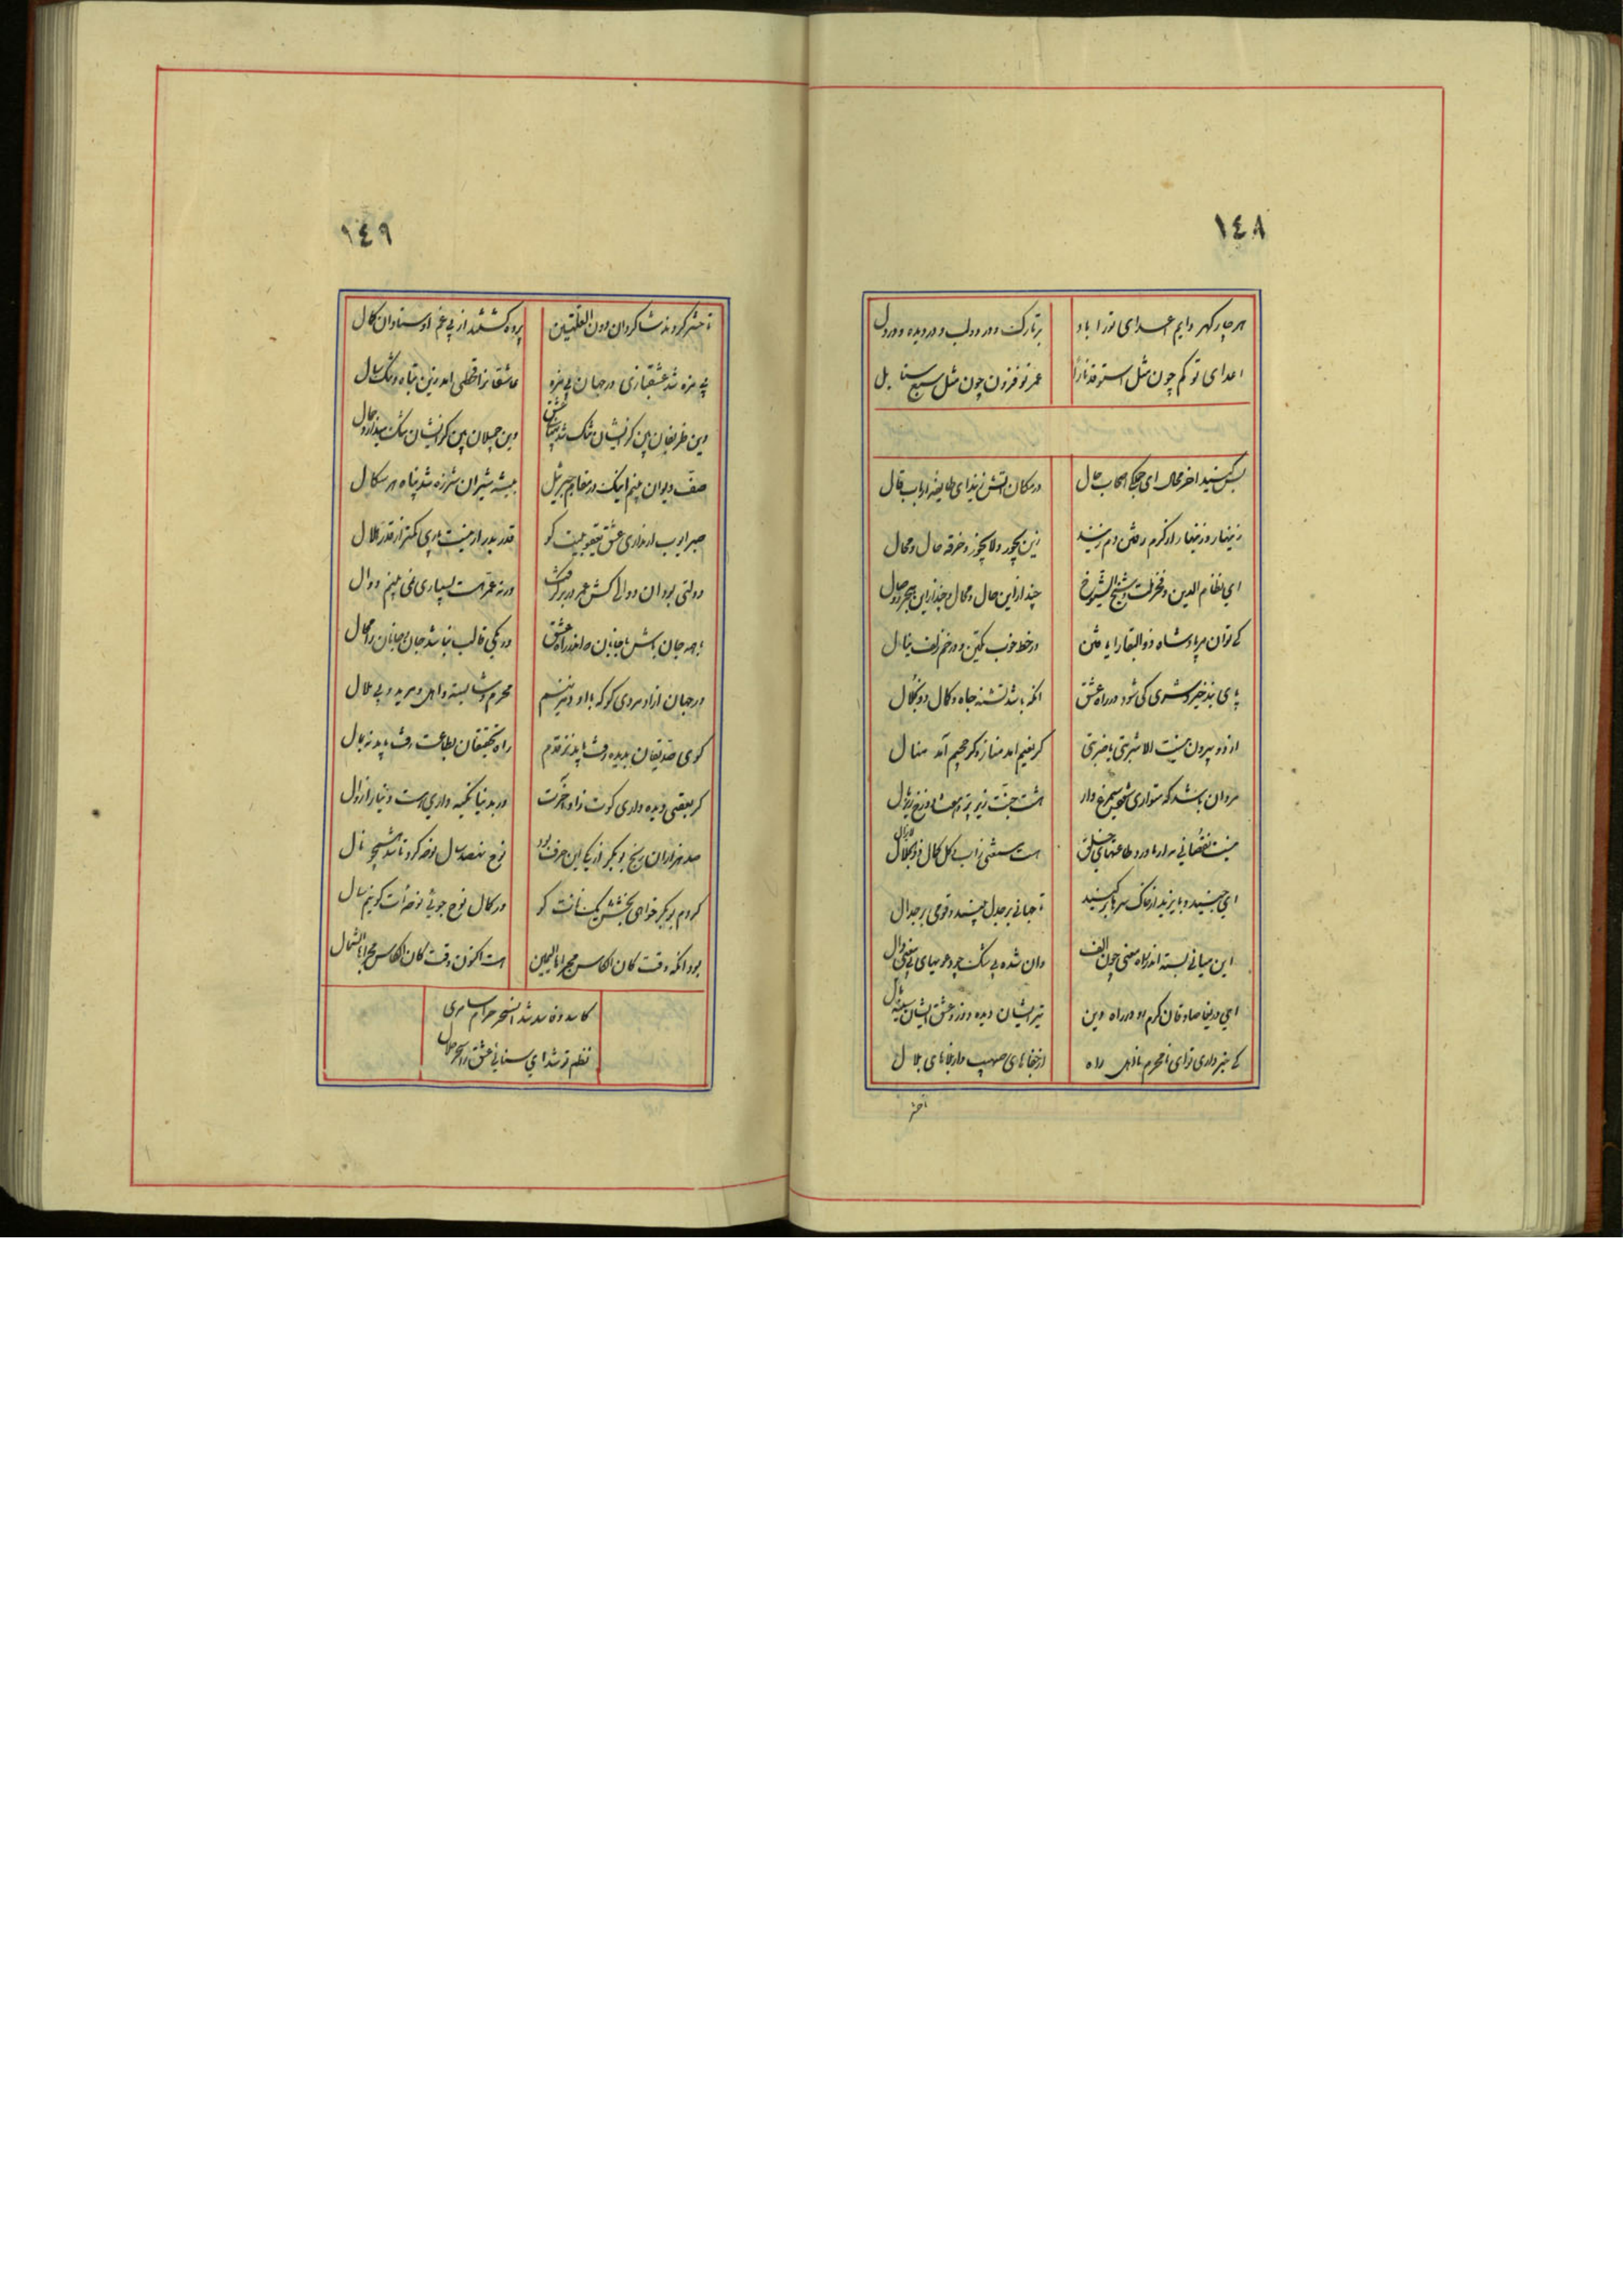 ١٤٨
هر چار گهر دایم اعدای ترا باد
بر تارک و در دو لب و در دیده و در دل
اعدای تو کم چون مثل استوقد نارا
عمر تو فزون چون مثل سبع سنابل
بس کنید آخر محال ای جمله اصحاب حال
در مکان آتش زنید ای طایفه ارباب قال
زینهار و زینهار از گرم رفتن دم زنید
زین یجوز و لایجوز و خرقه حال و محال
ای نظام الدین و فخر ملت و شیخ الشیوخ
چند ازین حال و محال و چند ازین هجر و وصال
کی توان مر پادشاه ذوالبقا را یافتن
در خط خوب تکین و در خم زلف ینال
پای بند خیر و شر کی شود در راه عشق
آنکه باشد تشنه جاه و کمال و نکال
از دو بیرون نیست الا شربتی یا ضربتی
گر نعیم آمد مناز و گر جحیم آمد منال
مردان باشد که متواری شخص سیمرغ وار
هشت جنت زیر پر هفت دوزخ زیر بال
نیست نقصانی مر او را در طاعتهای خلق
هست مستغنی ز آب و گل کمال ذوالجلال
ای جنید و بایزید از خاک سرها بر کنید
تا جهانی بر جدل بینید و قومی بر جدال
این میانی بسته اندر راه معنی چون الف
وان شده بی شک چو دعویهای بی معنی دال
ای دریغا صادقان گرم رو در راه دین
تیر ایشان دیده دوز و عشق ایشان سینه مال
کی خبر داری تو ای نامحرم نااهل راه
از جفاهای صهیب و از بلاهای بلال
تا حشر
١٤٩
تا حشر کردند شاگردان دون القلتین
پرده گشتند از پی غم اوستادان کمال
بی مزه شد عشقبازی در جهان بی مزه
عاشقان را قحطی آمد زین تباه و تنگ سال
وین ظریفان بین کز ایشان تنگ شد پهنای عشق
وین جمیلان بین کز ایشان ننگ میدارد جمال
صف دیوان بینم اینک در مقام جبرئیل
بیشه شیران شرزه شد پناه هر سگال
صبر ایوب ار نداری عشق یعقوبیت کو
قدر بدر ار نیست باری کمتر از قدر هلال
دولتی بود آن دوالی کش عمر در بر گرفت
ورنه عمر هست بسیاری نمی بینم دوال
با همه جان باش با جانان اندر راه عشق
در یکی قالب نباشد جان و جانان را مجال
در جهان آزاد مردی کو که با او دم زنیم
محرم و شایسته و اهل و مرید و بی ملال
کوی صدیقان بدیده رفت باید نز قدم
راه تحقیقان بطاعت رفت باید نز بال
گر بعقبی دیده داری کوت زاد آخرت
ور بدنیا تکیه داری هست دنیا را زوال
صد هزاران رنج بوبکر از یکی این حرف بود
نوح نهصد سال نوحه کرد تا شد همچو نال
کردم بوبکر خواهی بخشش یکسانت کو
در کمال نوح جویی نوحه ات کو نیم سال
بود آنکه وقت کان الکأس مجراها الیمین
هست اکنون وقت کان الکأس مجراها الشمال
کاسد و فاسد شد آن سحر حرام سامری
نظم تو شد ای سنایی عشق را سحر حلال